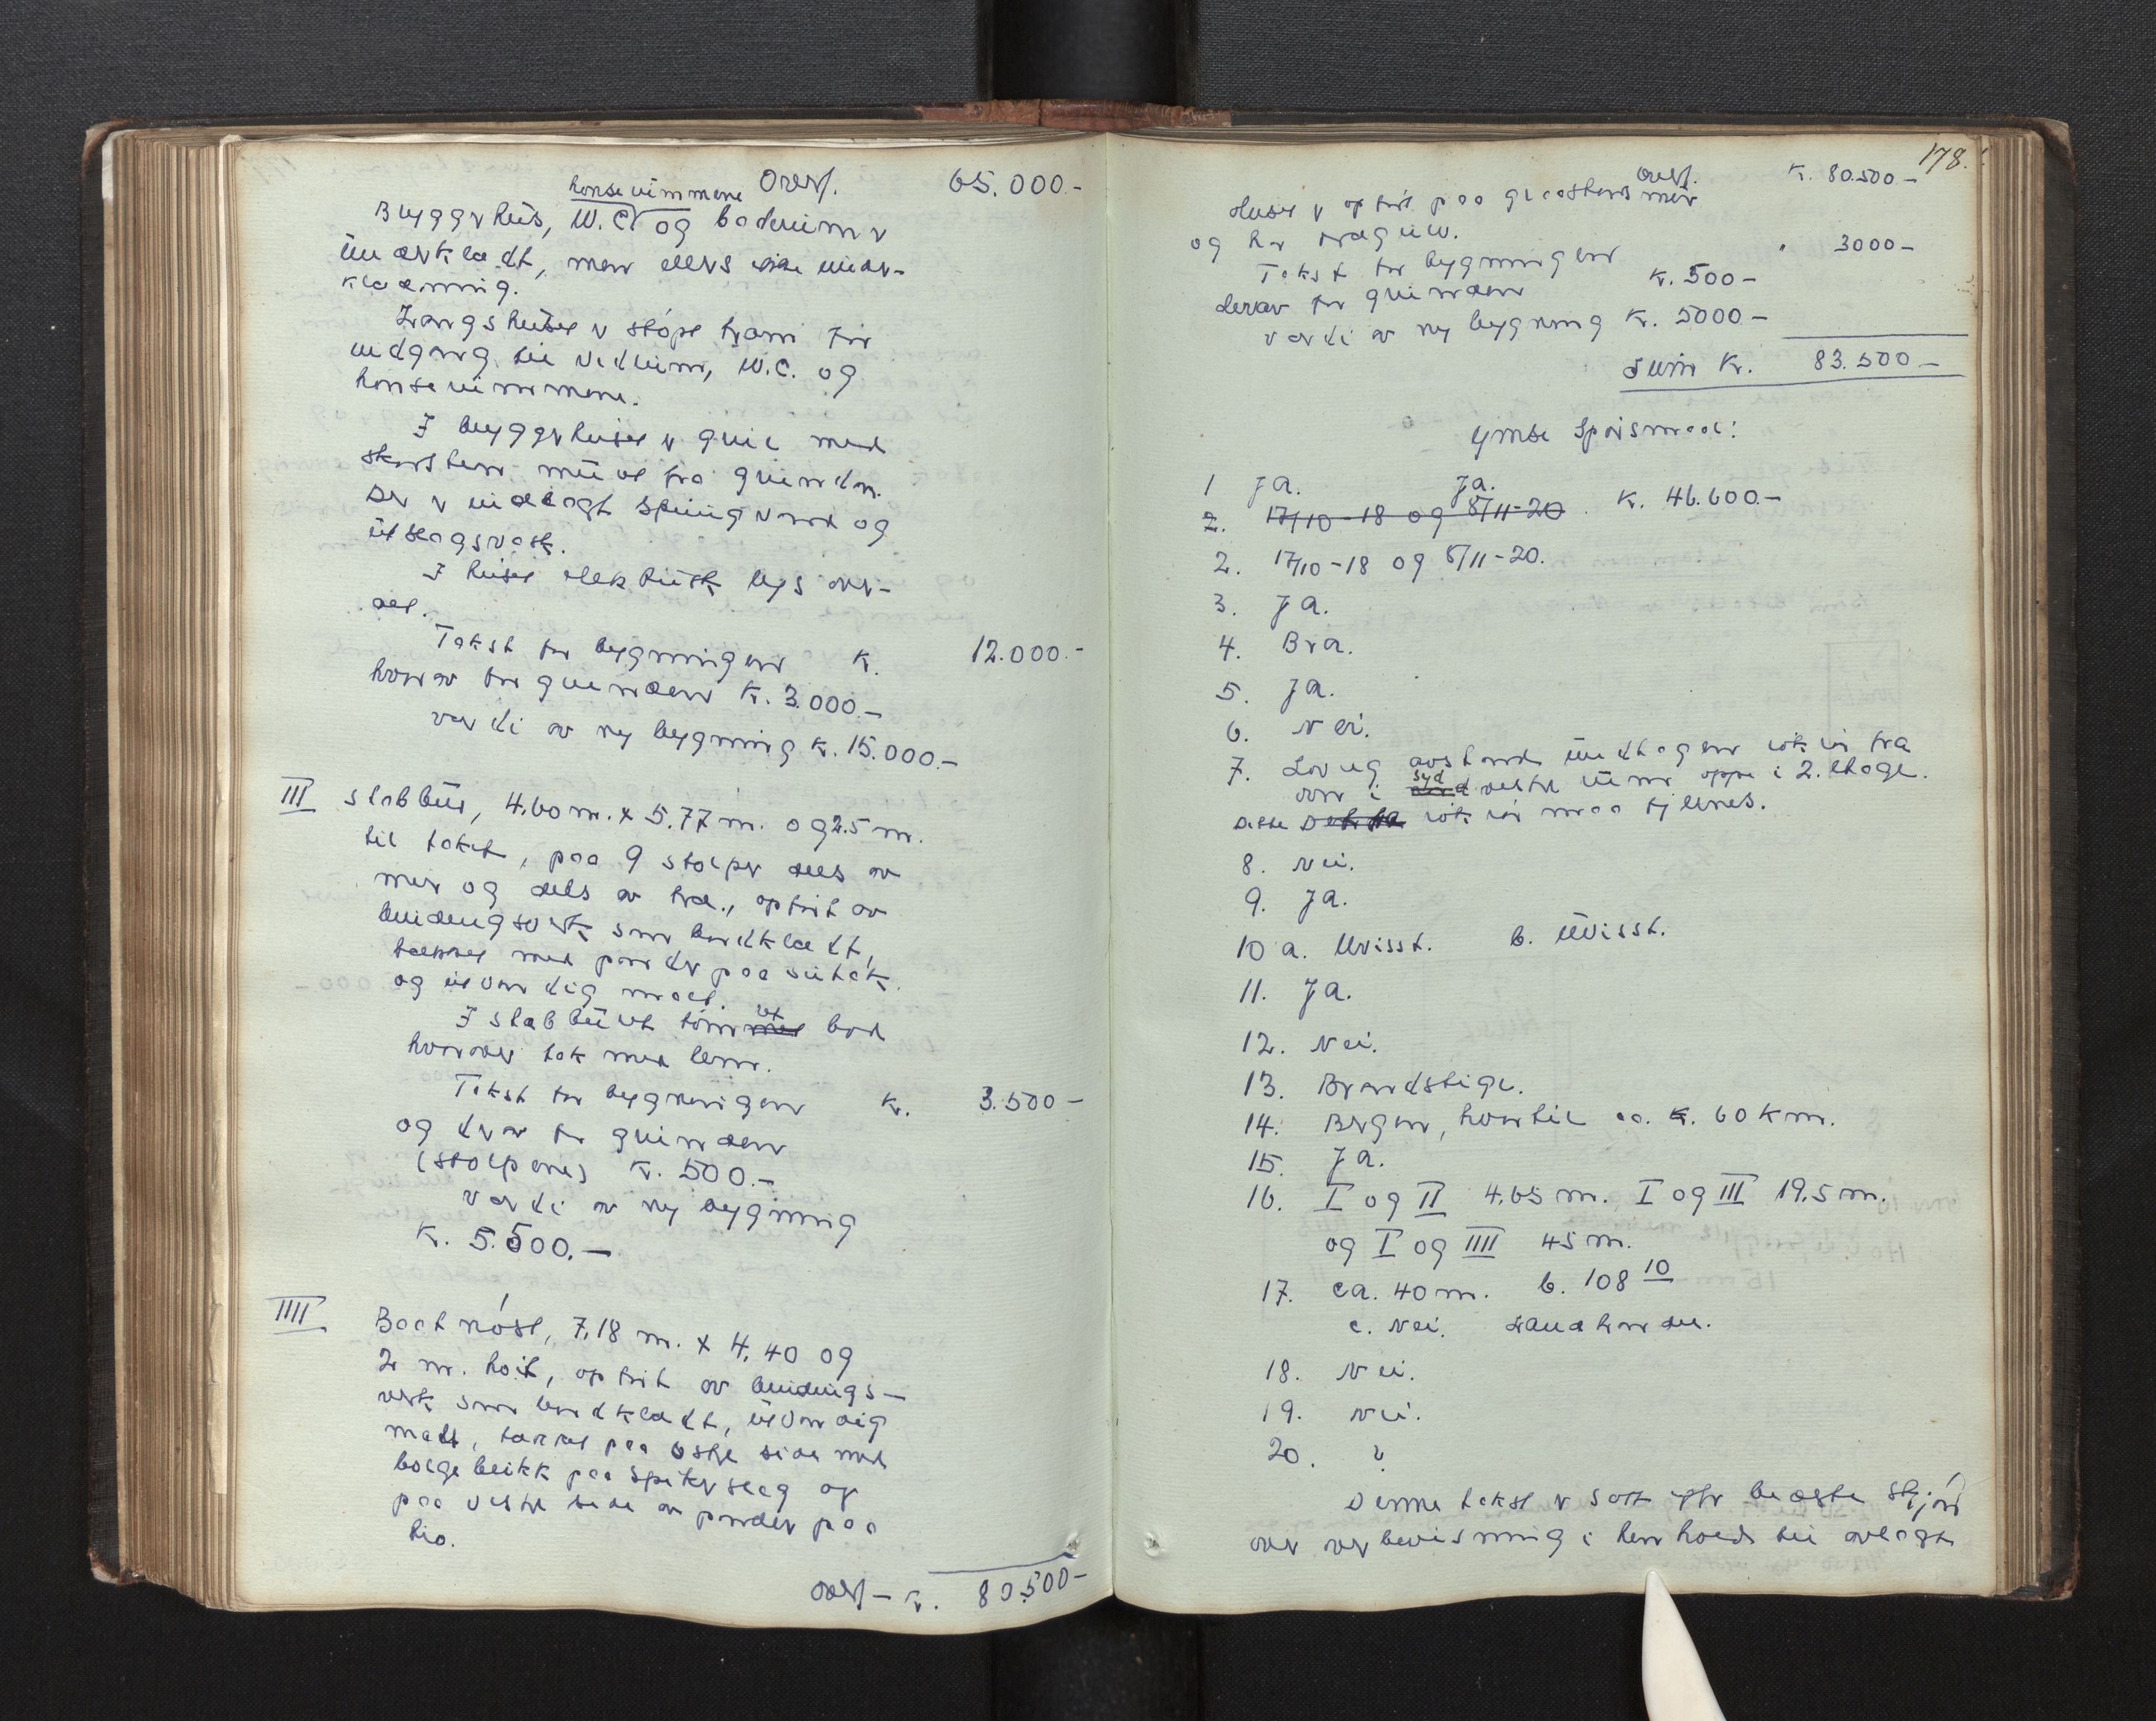 Overf. 65.000.-
hönserummene
Bryggerhus, W.C. og baderum er
underklædt, men ellers ikke under-
klædning.
Langs huset er støpt fram for
indgang til vedrum, W.C. og
hønserummene.
I bryggerhuset er grue med
skorsten muret fra grunden.
Der er indlagt springvand og
utslagsvask.
I huset elektrisk lys over-
alt.
Takst for bygningen K. 12.000.-
hvorav for grunden K. 3.000.-
værdi av ny bygning K. 15.000.-
III Stabbur, 4.60 m. x 5.77 m. og 2.5 m.
til taket, paa 9 stolper dels av
mur og dels av træ, opført av
bindingsverk som bordklædt,
tækket med pander paa sutak.
og utvendig malt.
I stabburet tømmret bod
hvorover tak med lem.
Takst for bygningen K. 3.500-
og derav for grunden
(stolpene) K. 500.-
værdi av ny bygning
K. 5.500.-
IIII Baatnøst, 7,18 m. x 4,40 og
2 m. høit, opført av bindings-
verk som bordklædt, utvendig
malt, tækket paa østre side med
bølgeblikk paa spikerslag og
paa vestre side av pander paa
tro.
Overf- K. 80.500-
178.
Overf. K. 80.500-
Huset er opført paa graastensmur
og har trægulv.
Takst for bygningen " 3000-
derav for grunden K. 500-
værdi av ny bygning K. 5000-
Sum K. 83.500-
Ymse Spörsmaal:
1 Ja. Ja.
2. 17/10-18 og 8/11-20. K. 46.600.-
2. 17/10-18 og 8/11-20.
3. Ja.
4. Bra.
5. Ja.
6. Nei.
7. Lovlig avstand undtagen rökrör fra
syd
ovn i nordvestre rum oppe i 2. etage.
Dette Dette rökrör maa fjernes.
8. Nei.
9. Ja.
10 a. Uvisst. b. Uvisst.
11. Ja.
12. Nei.
13. Brandstige.
14. Bergen, hvortil ca. K. 60 km.
15. Ja.
16. I og II 4.65 m. I og III 19.5 m.
og I og IIII 45 m.
17. ca. 40 m. b. 108 10
c. Nei. Landhandel.
18. Nei.
19. Nei.
20. "
Denne takst er satt efter bedste skjøn
og overbevisning i henhold til avlagt